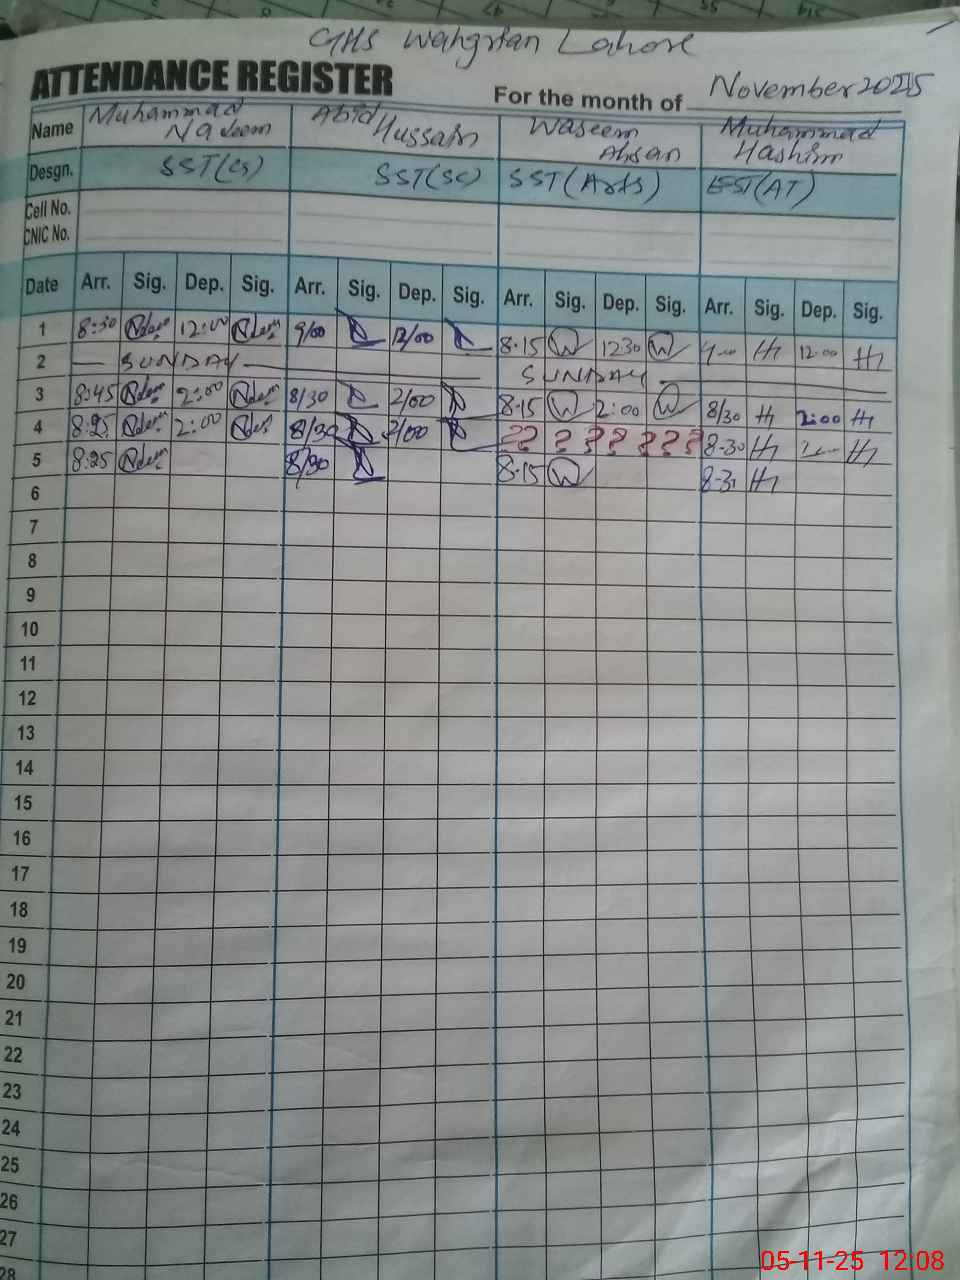 GHS Wahgrian Lahore
ATTENDANCE REGISTER For the month of November 2025
Name Muhammad Nadeem Abid Hussain Waseem Ahsan Muhammad Hashim
Desgn. SST(CS) SST(SC) SST(Arts) EST(AT)
Cell No.
CNIC No.
Date Arr. Sig. Dep. Sig. Arr. Sig. Dep. Sig. Arr. Sig. Dep. Sig. Arr. Sig. Dep. Sig.
1 8:30 12:00 9/00 12/00 8.15 W 1230 W 12:00
2 SUNDAY SUNDAY
3 8:45 2:00 8/30 2/00 8.15 W 2:00 W 8/30 2:00
4 8:25 2:00 8/30 2/00 ?? ? ?? ??? 8-30
5 8:25 8/30 8.15 W 8-30
6
7
8
9
10
11
12
13
14
15
16
17
18
19
20
21
22
23
24
25
26
27
28
05-11-25 12:08